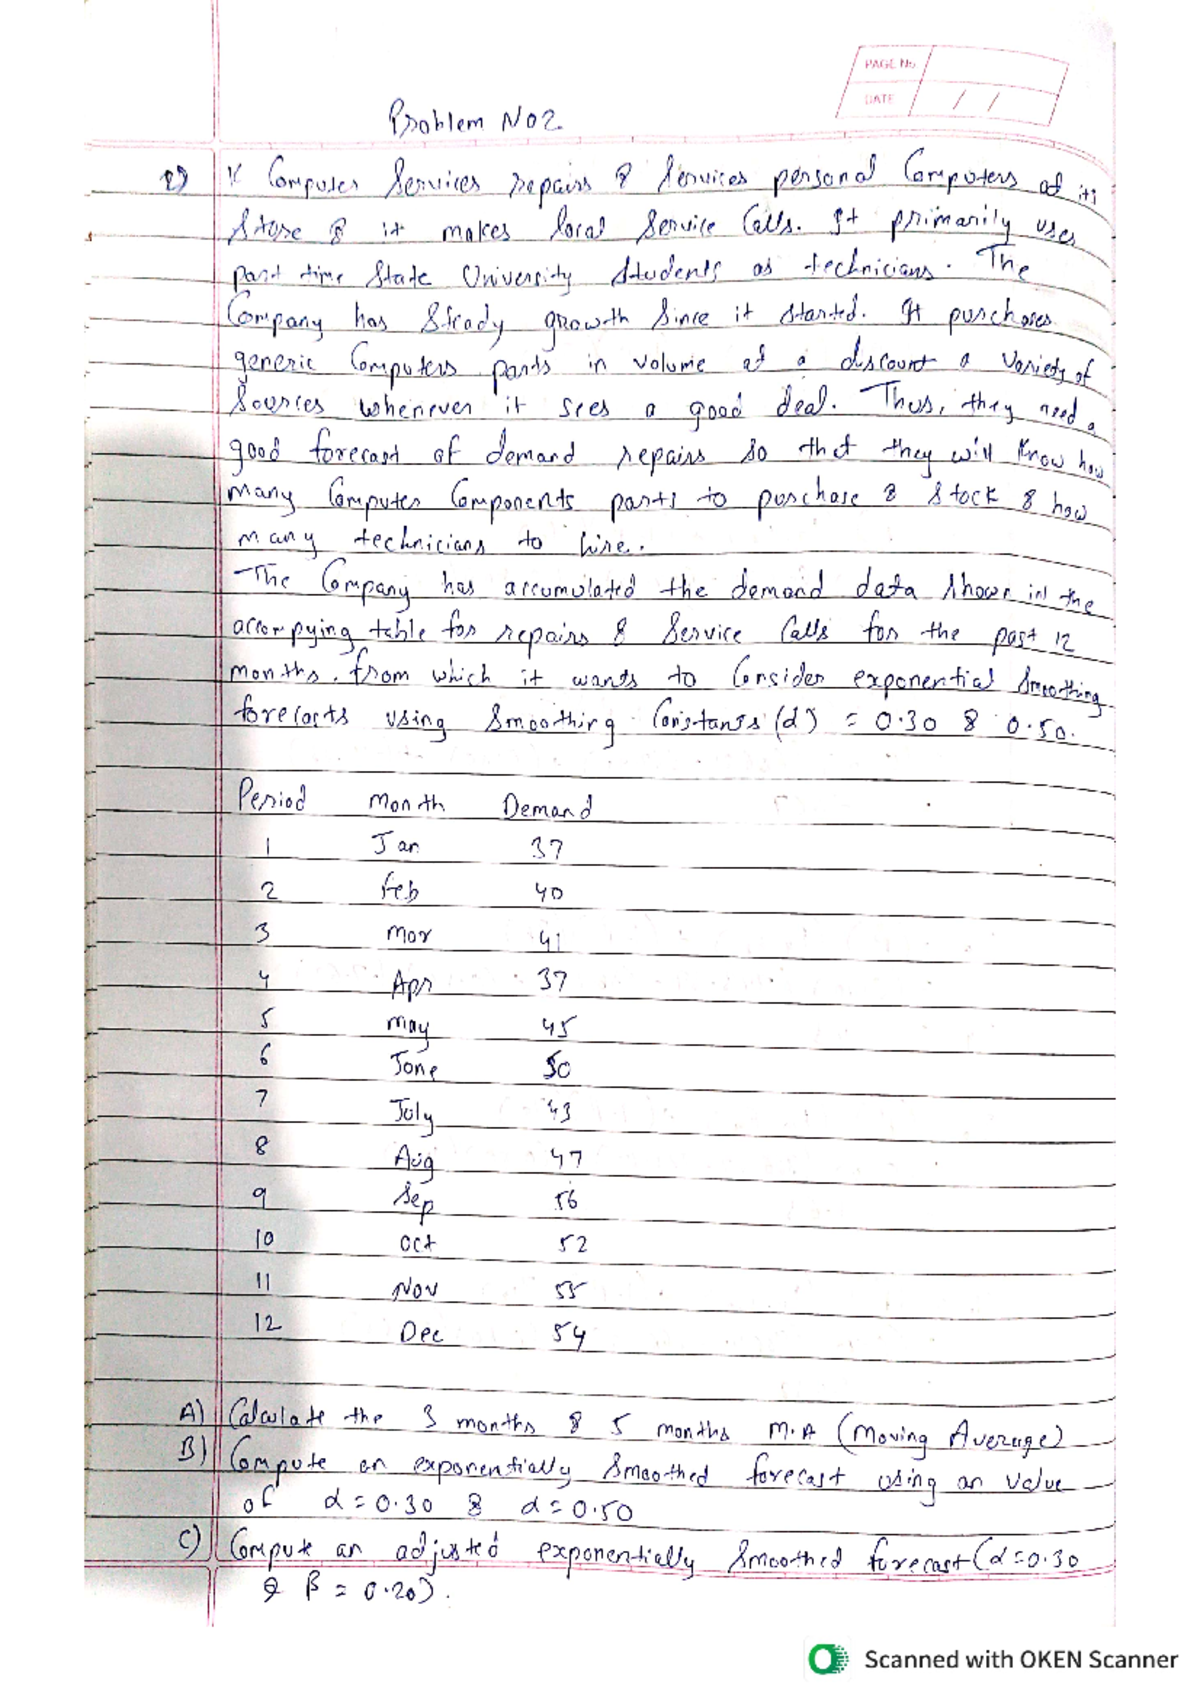 PAGE No.
DATE / /
Problem No 2.
2) K Computer Services repairs & Services personal Computers at its
Store & it makes local Service Calls. It primarily uses
part time State University Students as technicians. The
Company has Steady growth Since it started. It purchases
generic Computers parts in volume at a discount a variety of
Sources whenever it sees a good deal. Thus, they need a
good forecast of demand repairs so that they will Know how
many Computer Components parts to purchase & stock & how
many technicians to hire.
The Company has accumulated the demand data Shown in the
accompying table for repairs & Service Calls for the past 12
months. from which it wants to Consider exponential Smoothing
forecasts using Smoothing Constants (α) = 0.30 & 0.50.
Period Month Demand
1 Jan 37
2 Feb 40
3 Mar 41
4 Apr 37
5 May 45
6 June 50
7 July 43
8 Aug 47
9 Sep 56
10 Oct 52
11 Nov 55
12 Dec 54
A) Calculate the 3 months & 5 months M.A (Moving Average)
B) Compute an exponentially Smoothed forecast using an value
of α = 0.30 & α = 0.50
C) Compute an adjusted exponentially Smoothed forecast (α = 0.30
& β = 0.20).
Scanned with OKEN Scanner